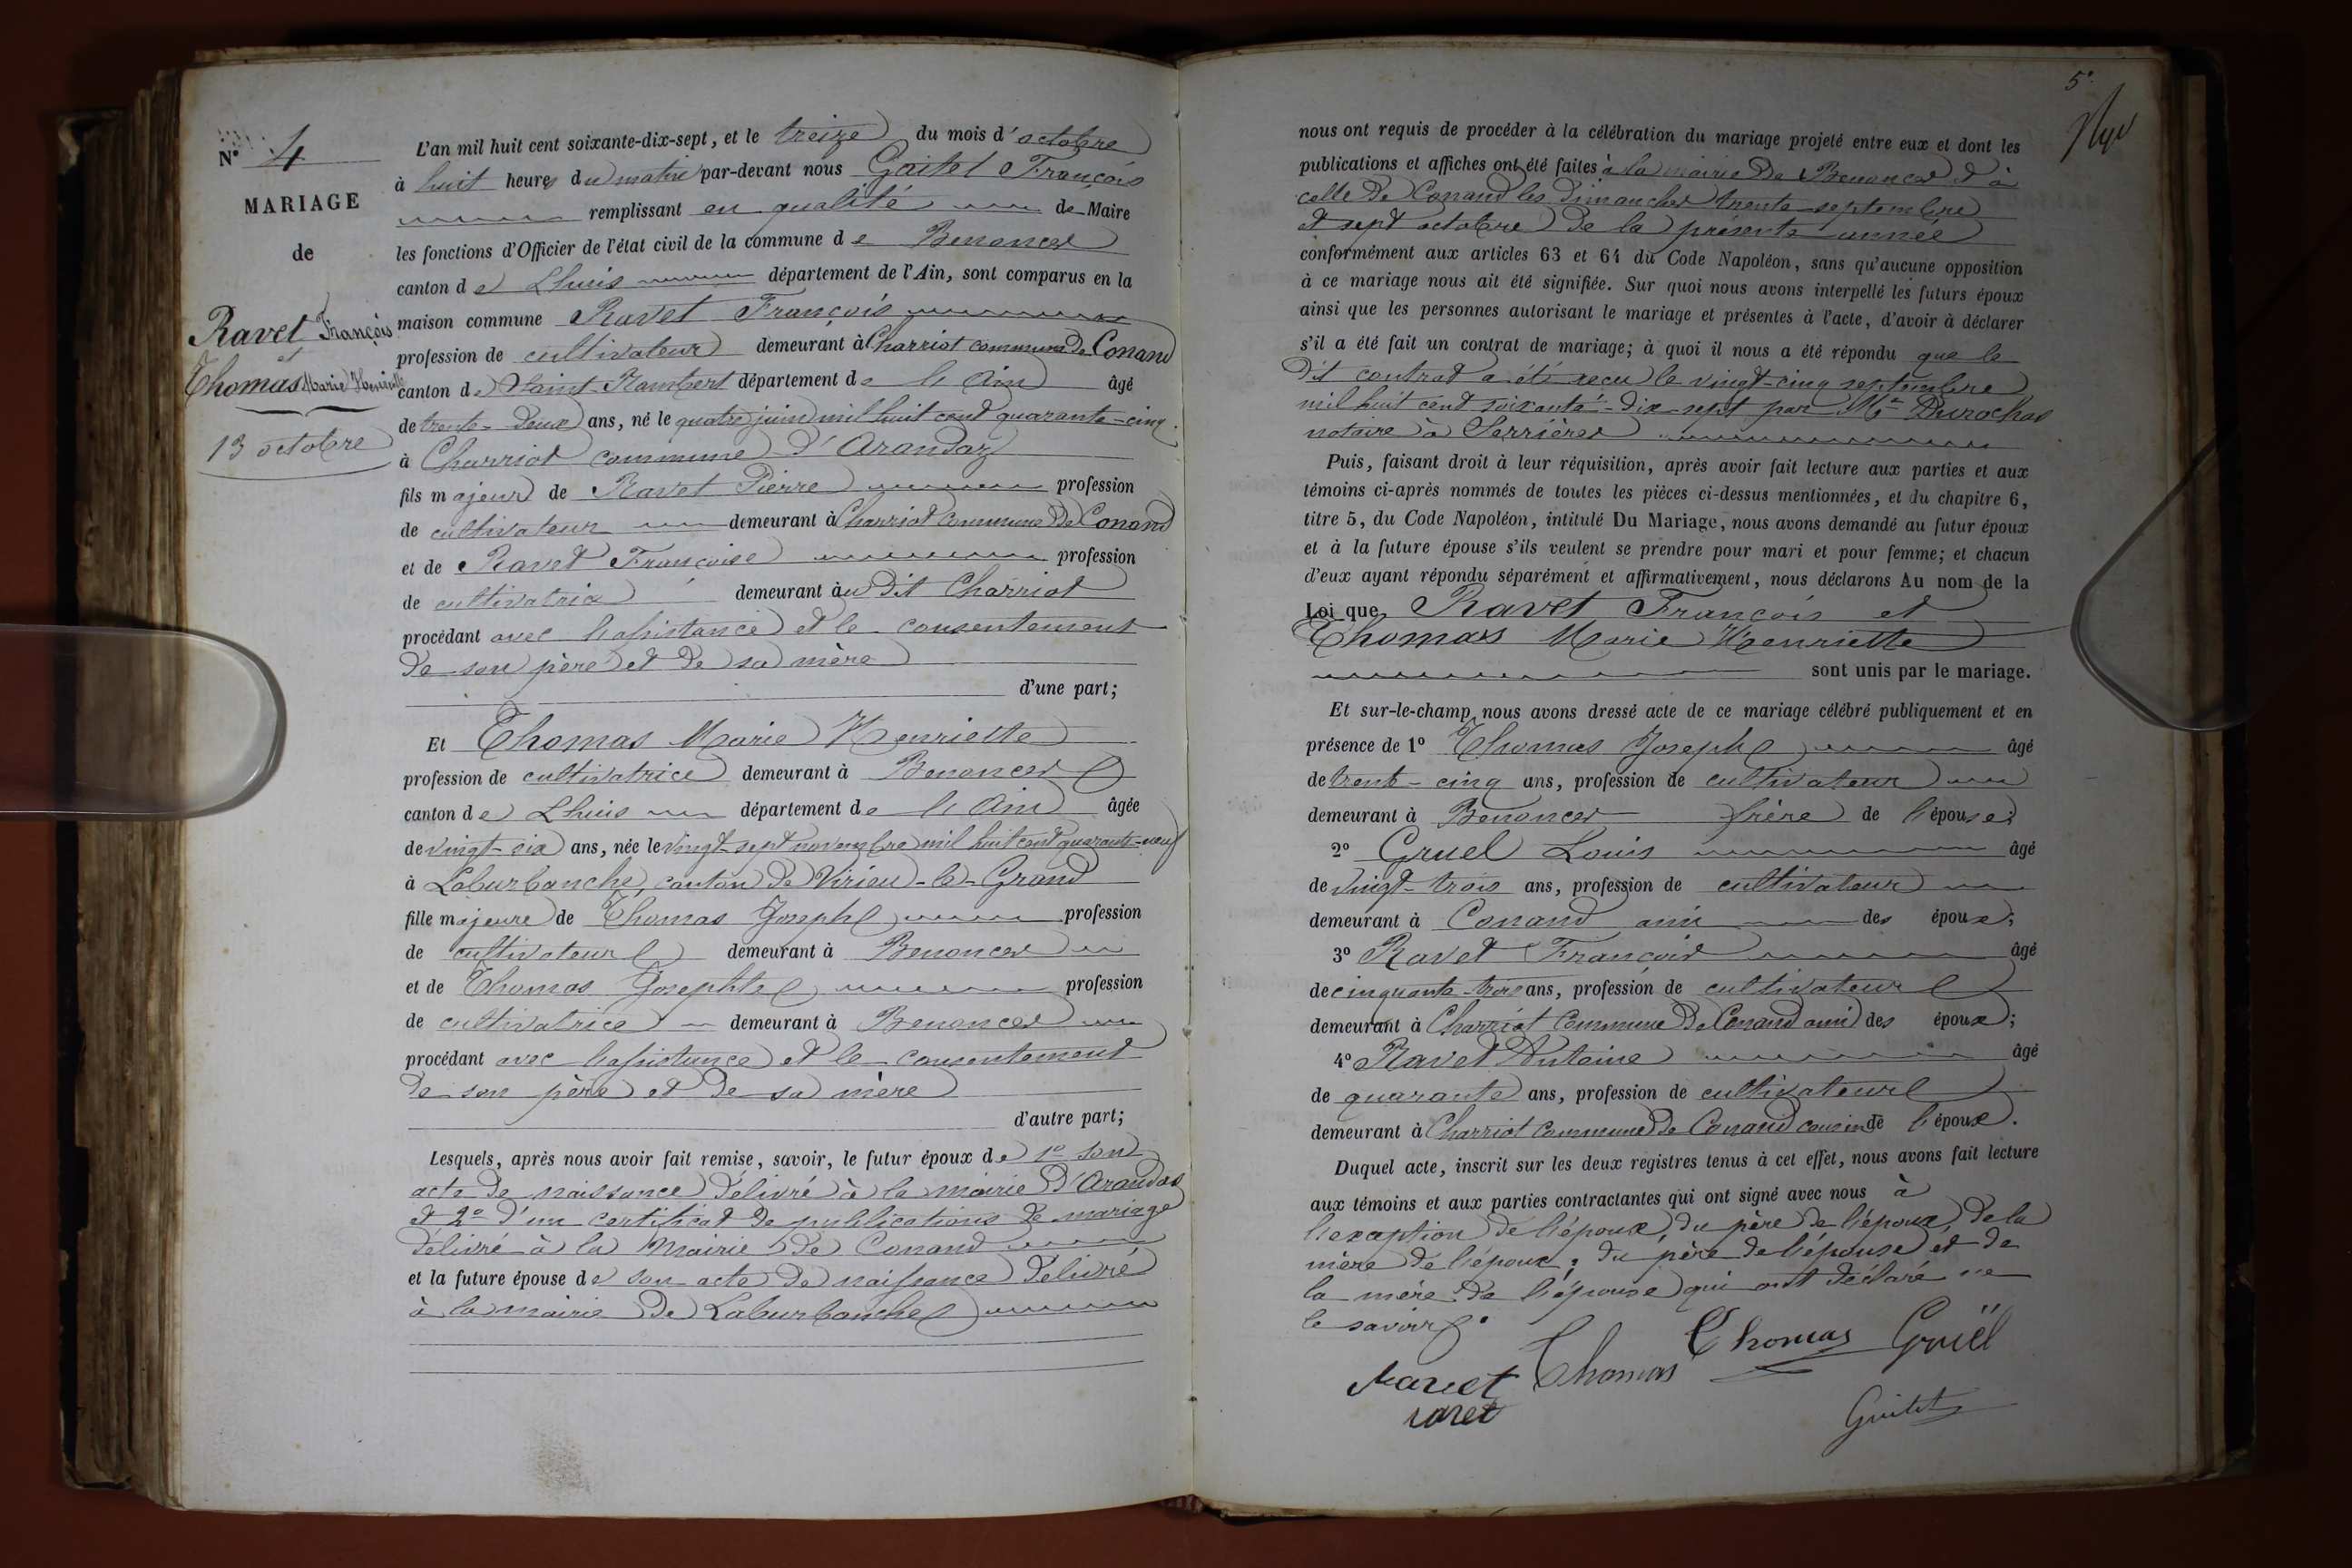 N° 4
MARIAGE
de
Ravet François
et
Thomas Marie Henriette
13 octobre
L'an mil huit cent soixante-dix-sept, et le treize du mois d'octobre
à huit heures du matin par-devant nous François
remplissant en qualité de Maire
les fonctions d'Officier de l'état civil de la commune de Benonces
canton de Lhuis département de l'Ain, sont comparus en la
maison commune Ravet François
profession de cultivateur demeurant à Charriot commune de Conand
canton de Saint Rambert département de l'Ain âgé
de trente-deux ans, né le quatre juin mil huit cent quarante-cinq
à Charriot commune d'Arandaz
fils majeur de Ravet Pierre profession
de cultivateur demeurant à Charriot commune de Conand
et de Ravet Françoise profession
de cultivatrice demeurant au dit Charriot
procédant avec l'assistance et le consentement
de son père et de sa mère
d'une part;
Et Thomas Marie Henriette
profession de cultivatrice demeurant à Benonces
canton de Lhuis département de l'Ain âgée
de vingt-six ans, née le vingt-sept novembre mil huit cent quarante-neuf
à Laburbanche, canton de Virieu-le-Grand
fille majeure de Thomas Joseph profession
de cultivateur demeurant à Benonces
et de Thomas Josephte profession
de cultivatrice demeurant à Benonces
procédant avec l'assistance et le consentement
de son père et de sa mère
d'autre part;
Lesquels, après nous avoir fait remise, savoir, le futur époux de 1° son
acte de naissance délivré à la mairie d'Arandas
et 2° d'un certificat de publications de mariage
délivré à la Mairie de Conand
et la future épouse de son acte de naissance délivré
à la mairie de Laburbanche
5
nous ont requis de procéder à la célébration du mariage projeté entre eux et dont les
publications et affiches ont été faites à la mairie de Benonces et à
celle de Conand les dimanches trente septembre
et sept octobre de la présente année
conformément aux articles 63 et 64 du Code Napoléon, sans qu'aucune opposition
à ce mariage nous ait été signifiée. Sur quoi nous avons interpellé les futurs époux
ainsi que les personnes autorisant le mariage et présentes à l'acte, d'avoir à déclarer
s'il a été fait un contrat de mariage; à quoi il nous a été répondu que le
dit contrat a été reçu le vingt-cinq septembre
mil huit cent soixante-dix-sept par Me Durochat
notaire à Serrières
Puis, faisant droit à leur réquisition, après avoir fait lecture aux parties et aux
témoins ci-après nommés de toutes les pièces ci-dessus mentionnées, et du chapitre 6,
titre 5, du Code Napoléon, intitulé Du Mariage, nous avons demandé au futur époux
et à la future épouse s'ils veulent se prendre pour mari et pour femme; et chacun
d'eux ayant répondu séparément et affirmativement, nous déclarons Au nom de la
Loi que Ravet François et
Thomas Marie Henriette
sont unis par le mariage.
Et sur-le-champ nous avons dressé acte de ce mariage célébré publiquement et en
présence de 1° Thomas Joseph âgé
de trente-cinq ans, profession de cultivateur
demeurant à Benonces frère de l'épouse;
2° Gruel Louis âgé
de vingt-trois ans, profession de cultivateur
demeurant à Conand ami des époux;
3° Ravet François âgé
de cinquante-trois ans, profession de cultivateur
demeurant à Charriot commune de Conand ami des époux;
4° Ravet Antoine âgé
de quarante ans, profession de cultivateur
demeurant à Charriot commune de Conand cousin de l'époux.
Duquel acte, inscrit sur les deux registres tenus à cet effet, nous avons fait lecture
aux témoins et aux parties contractantes qui ont signé avec nous à
l'exception de l'époux, du père de l'époux, de la
mère de l'époux, du père de l'épouse et de
la mère de l'épouse qui ont déclaré ne
le savoir.
Thomas Gruël
Ravet Thomas
ravet